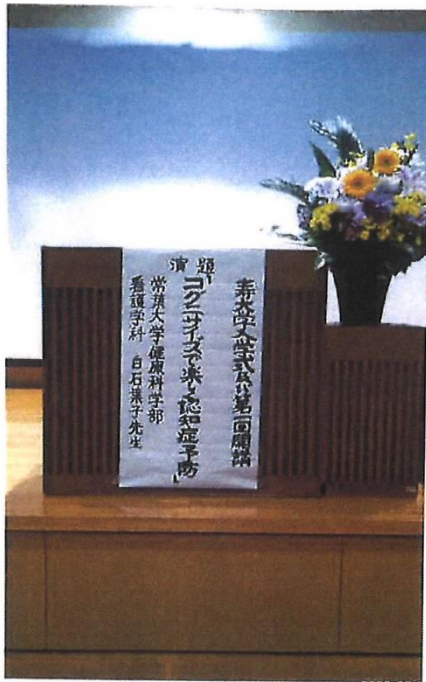 寿大学入学式及び第一回開講
演題
「コグニサイズで楽しく認知症予防」
常葉大学健康科学部
看護学科 白石葉子先生